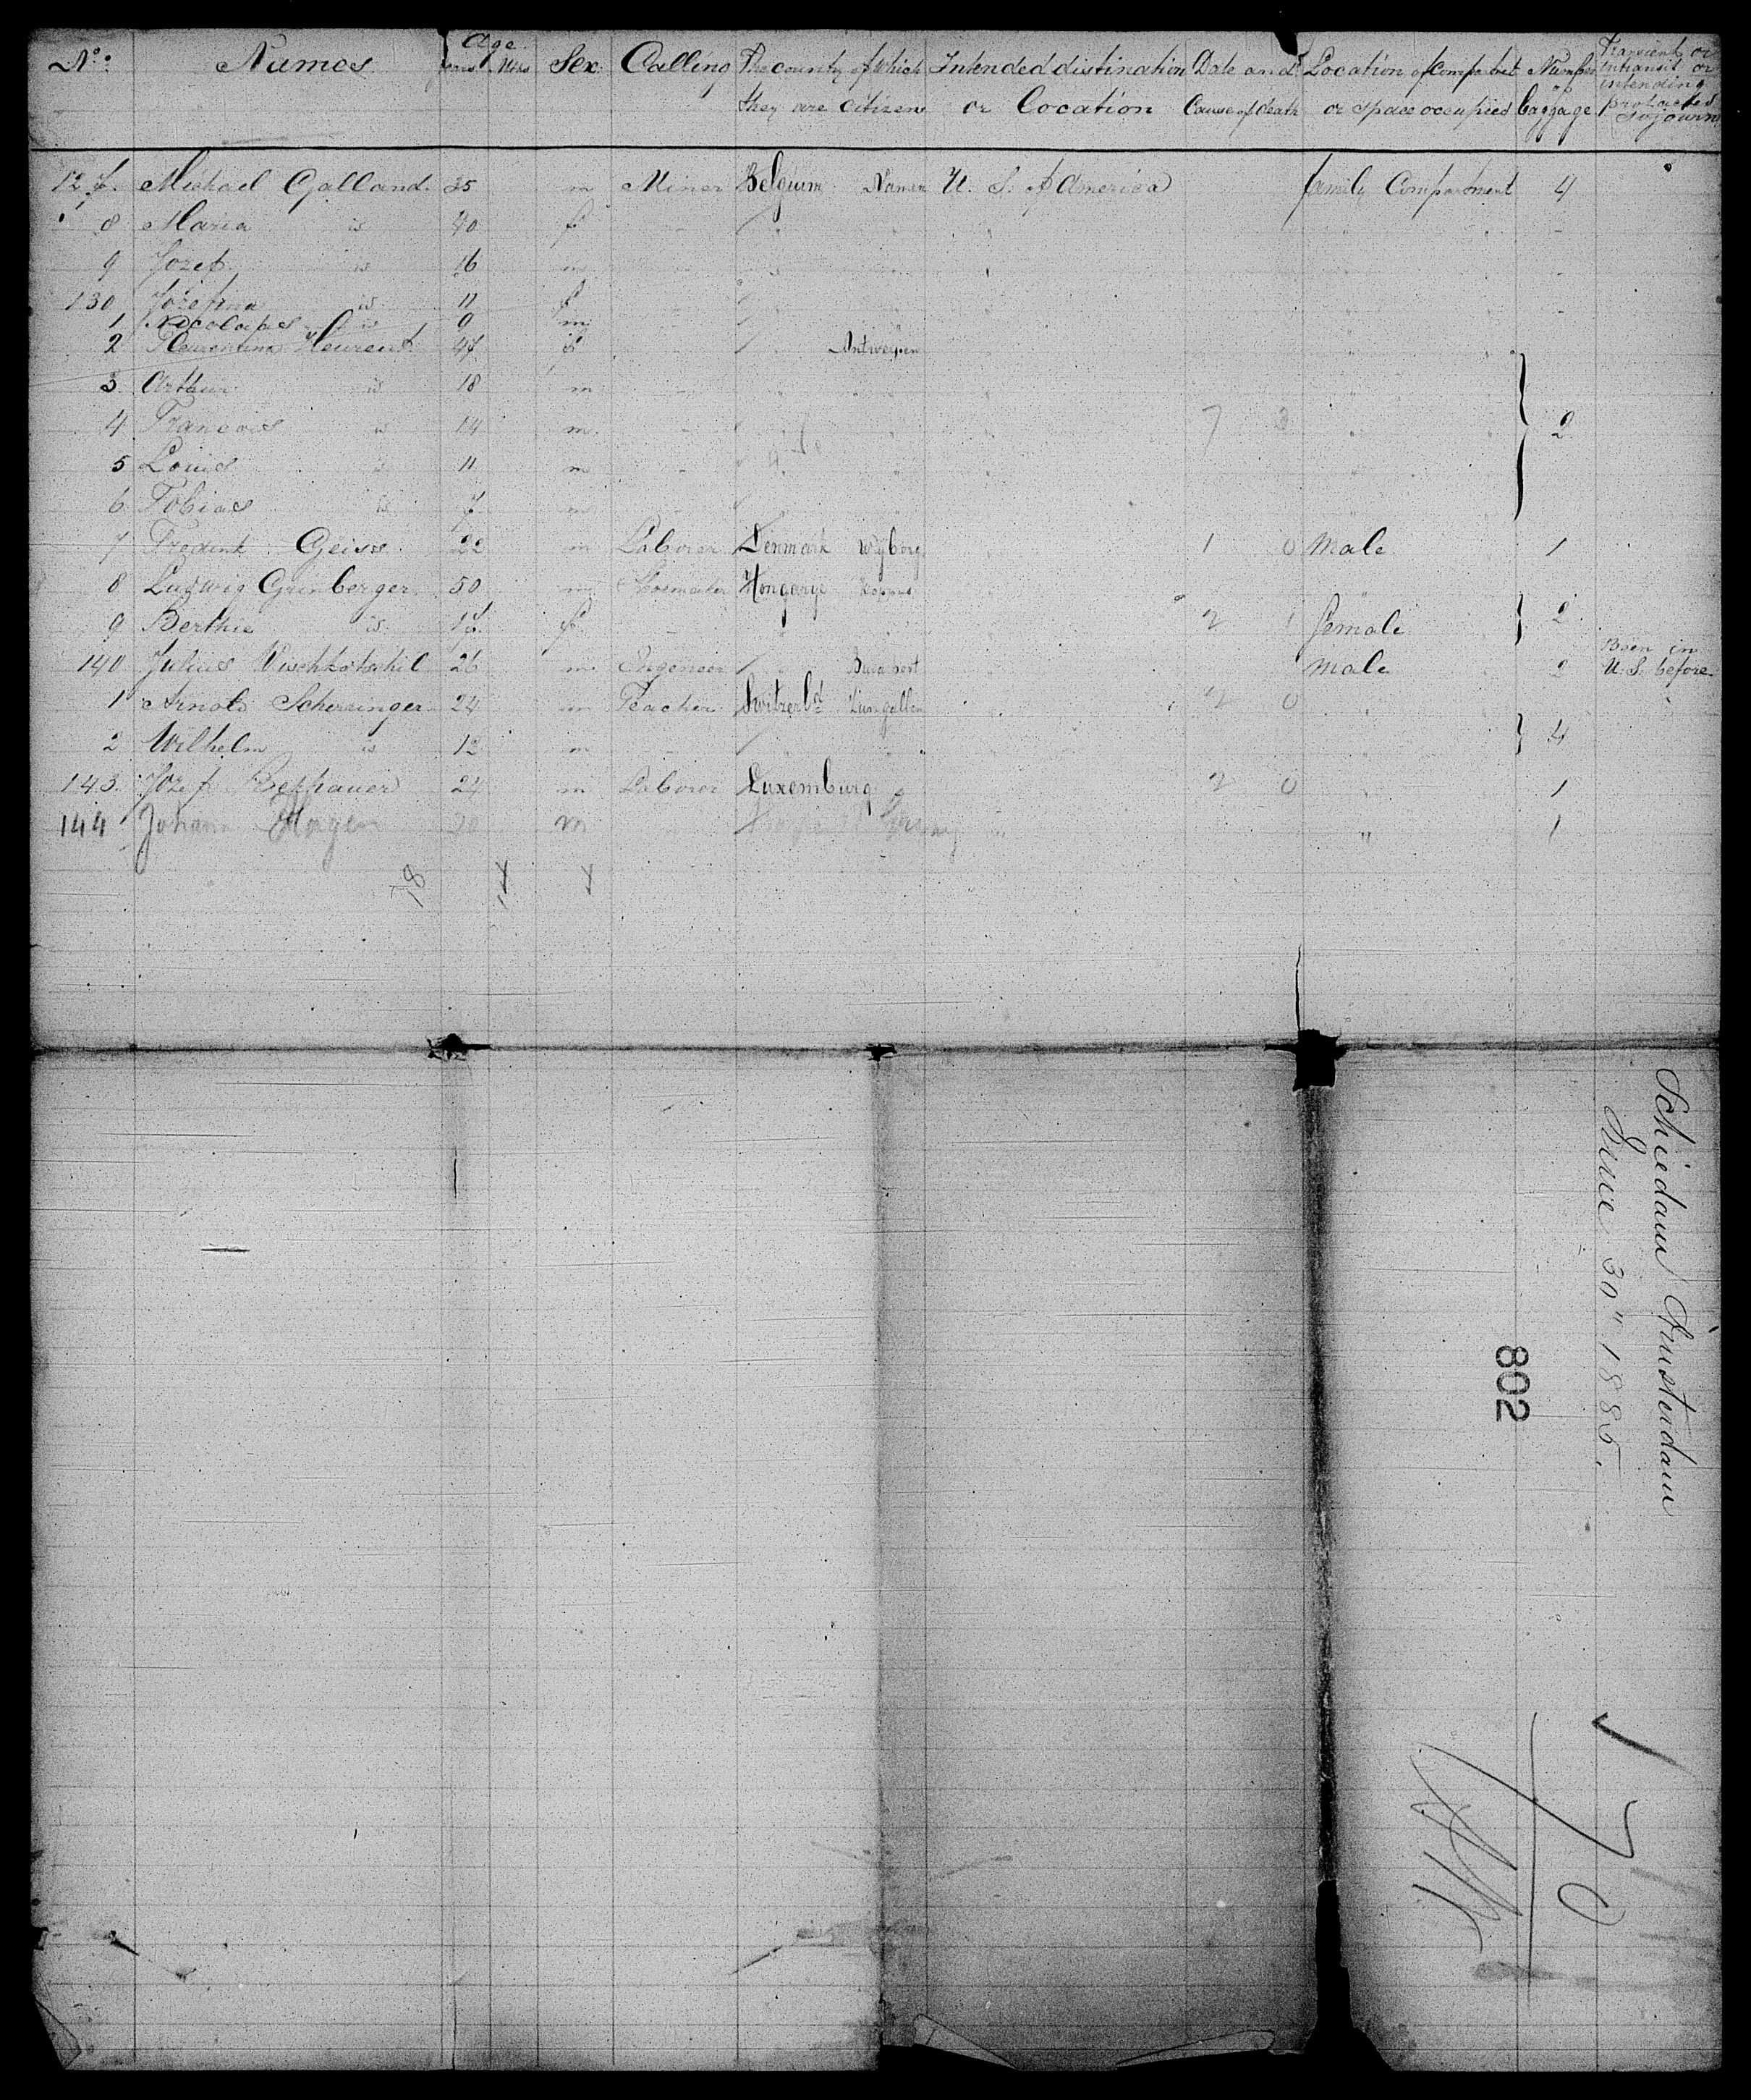 No. Names Age years Mths Sex Calling The country of which they are citizens Intended distination or location Date and Cause of death Location of Compartmt or space occupied Number of baggage Transient or intransit or intending protracted sojourn
127. Michael Galland 35 m Miner Belgium Namen U. S. of America family Compartment 4
8 Maria is 40 f " " " " -
9 Jozef is 16 m " " " " -
130 Jozefina is 11 f " " " " -
1 Nicolaas is 9 m " " " "
2 Heurent 47 f - " Antwerpen " "
3 Arthur is 18 m - " " " "
4 Francois is 14 m - " " " 7 3 " 2
5 Louis is 11 m - " " " "
6 Tobias is 7 m - " " "
7 Geiss 22 m Laborer Denmark Wyborg " 1 0 Male 1
8 Ludwig Grinberger 50 m Shoemaker Hongarye " "
9 Berthe is 17 f - " " " 2 1 female 2
140 Julius 26 m Engeneer " " Male 2 Been in U. S. before
1 Arnold Scherringer 24 m Teacher Switzerld " 2 0 " "
2 Wilhelm is 12 m - " " " " 4
143. Jozef 24 m Laborer Luxemburg " 2 0 " 1
144 Johann Hagen 20 m " " 1
78
Schiedam Amsterdam
June 30" 1885.
802
170